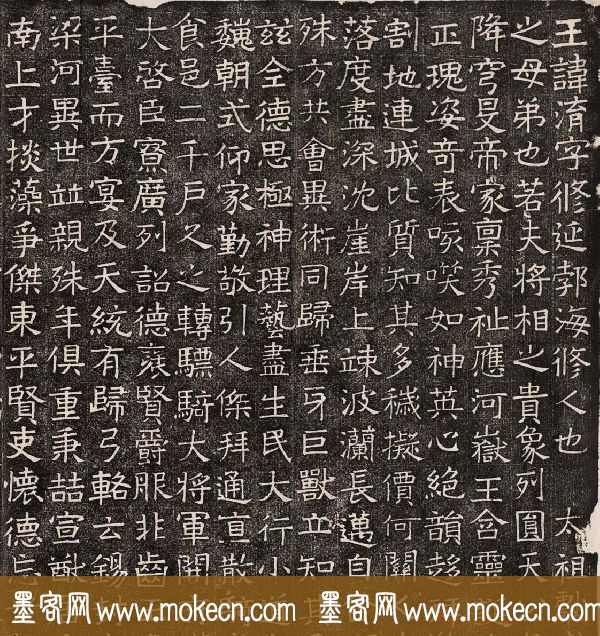 王諱淯字脩延勃海脩人也 太祖獻
之母弟也若夫將相之貴象列圓天
降穹旻帝家稟秀祉應河嶽王含靈
正瑰姿奇表咲如神英心絕韻彭
割地連城比質知其多穢擬價何關
落度盡深沈崖岸上竦波瀾長邁自
殊方共會異術同歸垂牙巨獸立知其
玆全德思極神理藝盡生民大行小道
魏朝式仰家勤敬引人傺拜通直散
食邑二千戶久之轉驃騎大將軍開
大啓臣寮廣列詔德襃賢爵服非齒
平臺而方宴及天統有歸弓輅云錫
梁河異世並親殊年俱重秉喆宣猷
南上才掞藻爭傑東平賢吏懷德忘
墨客网 www.mokecn.com 墨客网 www.mokecn.com